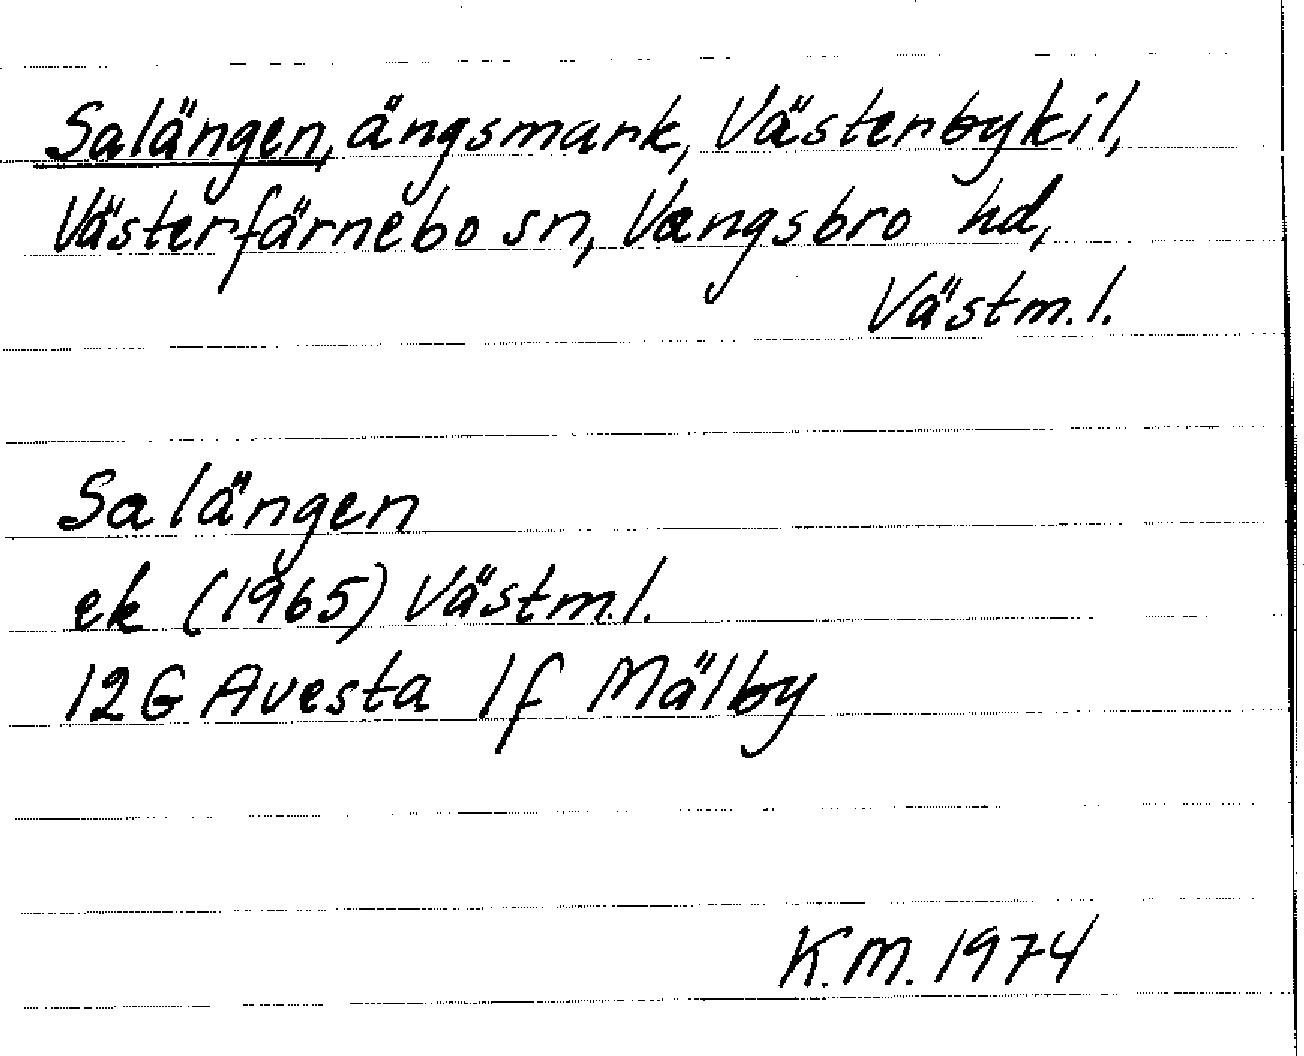 Salängen, ängsmark, Västerbykil,
Västerfärnebo sn, Vangsbro hd,
Västm.l.
Salängen
ek (1965) Västm.l.
12G Avesta 1f Mälby
K.M. 1974